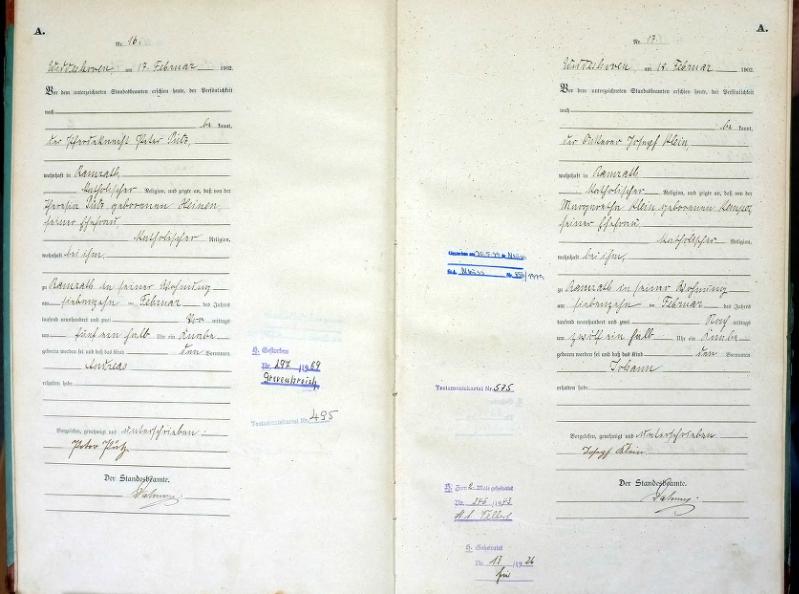 A.
Nr. 16.
am 17. Februar 1902.
Vor dem unterzeichneten Standesbeamten erschien heute, der Persönlichkeit
nach
be kannt,
der Pferdeknecht Peter Pütz,
wohnhaft in Ramrath,
katholischer Religion, und zeigte an, daß von der
Theresia Pütz geborenen Heinen,
seiner Ehefrau,
katholischer Religion,
wohnhaft bei ihm,
zu Ramrath in seiner Wohnung
am siebenzehn ten Februar des Jahres
tausend neunhundert und zwei Vor mittags
um fünf ein halb Uhr ein Knabe
geboren worden sei und daß das Kind den Vornamen
Andreas
erhalten habe.
Vorgelesen, genehmigt und unterschrieben:
Peter Pütz
Der Standesbeamte.
H. Gestorben
Nr. 197 /1969
Grevenbroich
Testamentskartei Nr. 495
A.
Nr. 17.
am 18. Februar 1902.
Vor dem unterzeichneten Standesbeamten erschien heute, der Persönlichkeit
nach
be kannt,
der Joseph Klein,
wohnhaft in Ramrath,
katholischer Religion, und zeigte an, daß von der
Margaretha Klein geborenen
seiner Ehefrau,
katholischer Religion,
wohnhaft bei ihm,
zu Ramrath in seiner Wohnung
am siebenzehn ten Februar des Jahres
tausend neunhundert und zwei Nach mittags
um zwölf ein halb Uhr ein Knabe
geboren worden sei und daß das Kind den Vornamen
Johann
erhalten habe.
Vorgelesen, genehmigt und unterschrieben
Joseph Klein
Der Standesbeamte.
Gestorben am Neuss
Neuss Nr.
Testamentskartei Nr. 505
Zum 2. Male geheiratet
Nr.
H. Geheiratet
Nr. 13 /1926